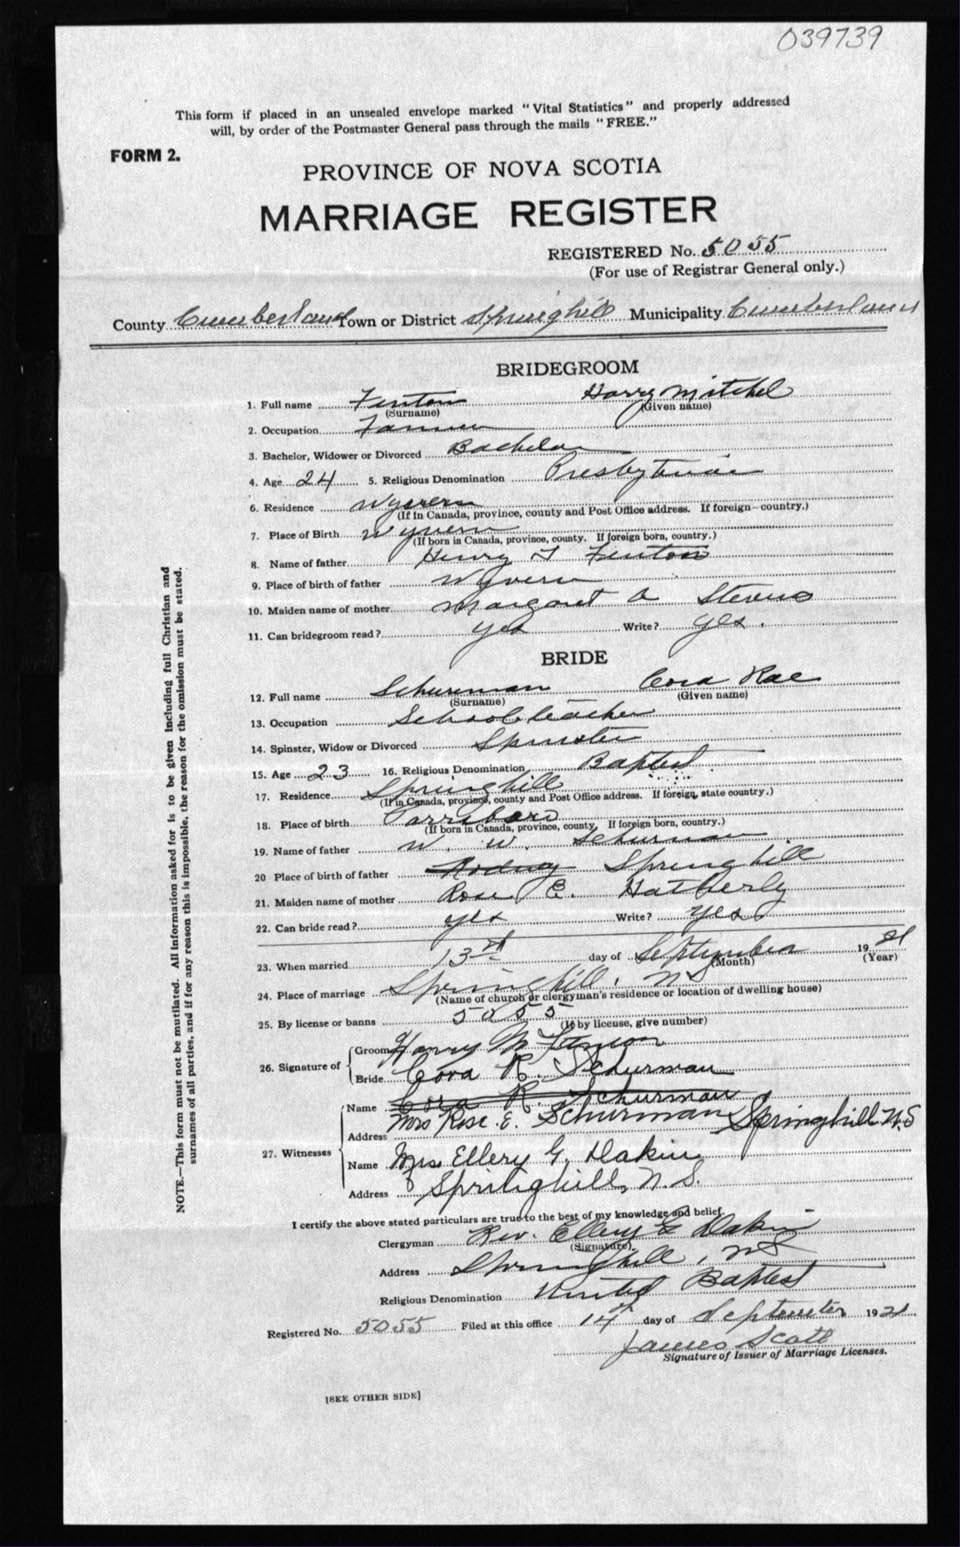 039739
This form if placed in an unsealed envelope marked "Vital Statistics" and properly addressed
will, by order of the Postmaster General pass through the mails "FREE."
FORM 2.
PROVINCE OF NOVA SCOTIA
MARRIAGE REGISTER
REGISTERED No. 5055
(For use of Registrar General only.)
County Cumberland Town or District Springhill Municipality Cumberland
BRIDEGROOM
1. Full name Fenton Harry Mitchel
(Surname) (Given name)
2. Occupation Farmer
3. Bachelor, Widower or Divorced Bachelor
4. Age 24 5. Religious Denomination Presbyterian
6. Residence Wyvern
(If in Canada, province, county and Post Office address. If foreign—country.)
7. Place of Birth Wyvern
(If born in Canada, province, county. If foreign born, country.)
8. Name of father Henry T Fenton
9. Place of birth of father Wyvern
10. Maiden name of mother Margaret A Stevens
11. Can bridegroom read? yes Write? yes.
BRIDE
12. Full name Schurman Cora Rae
(Surname) (Given name)
13. Occupation School teacher
14. Spinster, Widow or Divorced Spinster
15. Age 23 16. Religious Denomination Baptist
17. Residence Springhill
(If in Canada, province, county and Post Office address. If foreign, state country.)
18. Place of birth Parrsboro
(If born in Canada, province, county. If foreign born, country.)
19. Name of father W. W. Schurman
20 Place of birth of father Rodney Springhill
21. Maiden name of mother Rose E. Hatherly
22. Can bride read? yes Write? yes
23. When married 13th day of September 1921
(Month) (Year)
24. Place of marriage Springhill, N S
(Name of church or clergyman's residence or location of dwelling house)
25. By license or banns 5055
(If by license, give number)
26. Signature of
Groom Harry M Fenton
Bride Cora R. Schurman
27. Witnesses
Name Cora R. Schurman
Mrs Rose E. Schurman Springhill N.S
Address
Name Mrs Ellery G. Dakin
Address Springhill, N. S.
I certify the above stated particulars are true to the best of my knowledge and belief.
Clergyman Rev. Ellery G Dakin
(Signature)
Address Springhill, N S
Religious Denomination United Baptist
Registered No. 5055 Filed at this office 14th day of September 1921
James Scott
Signature of Issuer of Marriage Licenses.
[SEE OTHER SIDE]
NOTE.—This form must not be mutilated. All information asked for is to be given including full Christian and
surnames of all parties, and if for any reason this is impossible, the reason for the omission must be stated.